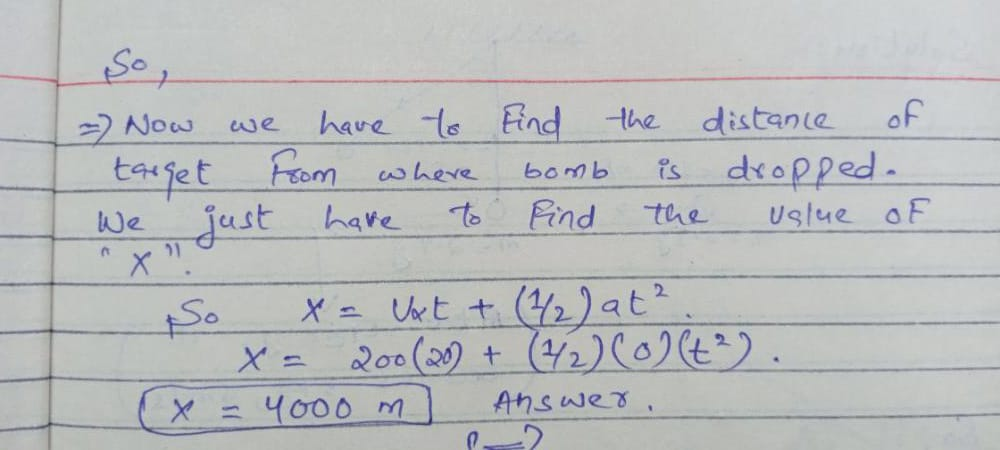 So,
=> Now we have to find the distance of
target from where bomb is dropped.
We just have to find the value of
"x".
So x = Uxt + (1/2)at².
x = 200(20) + (1/2)(0)(t²).
x = 4000 m Answer.